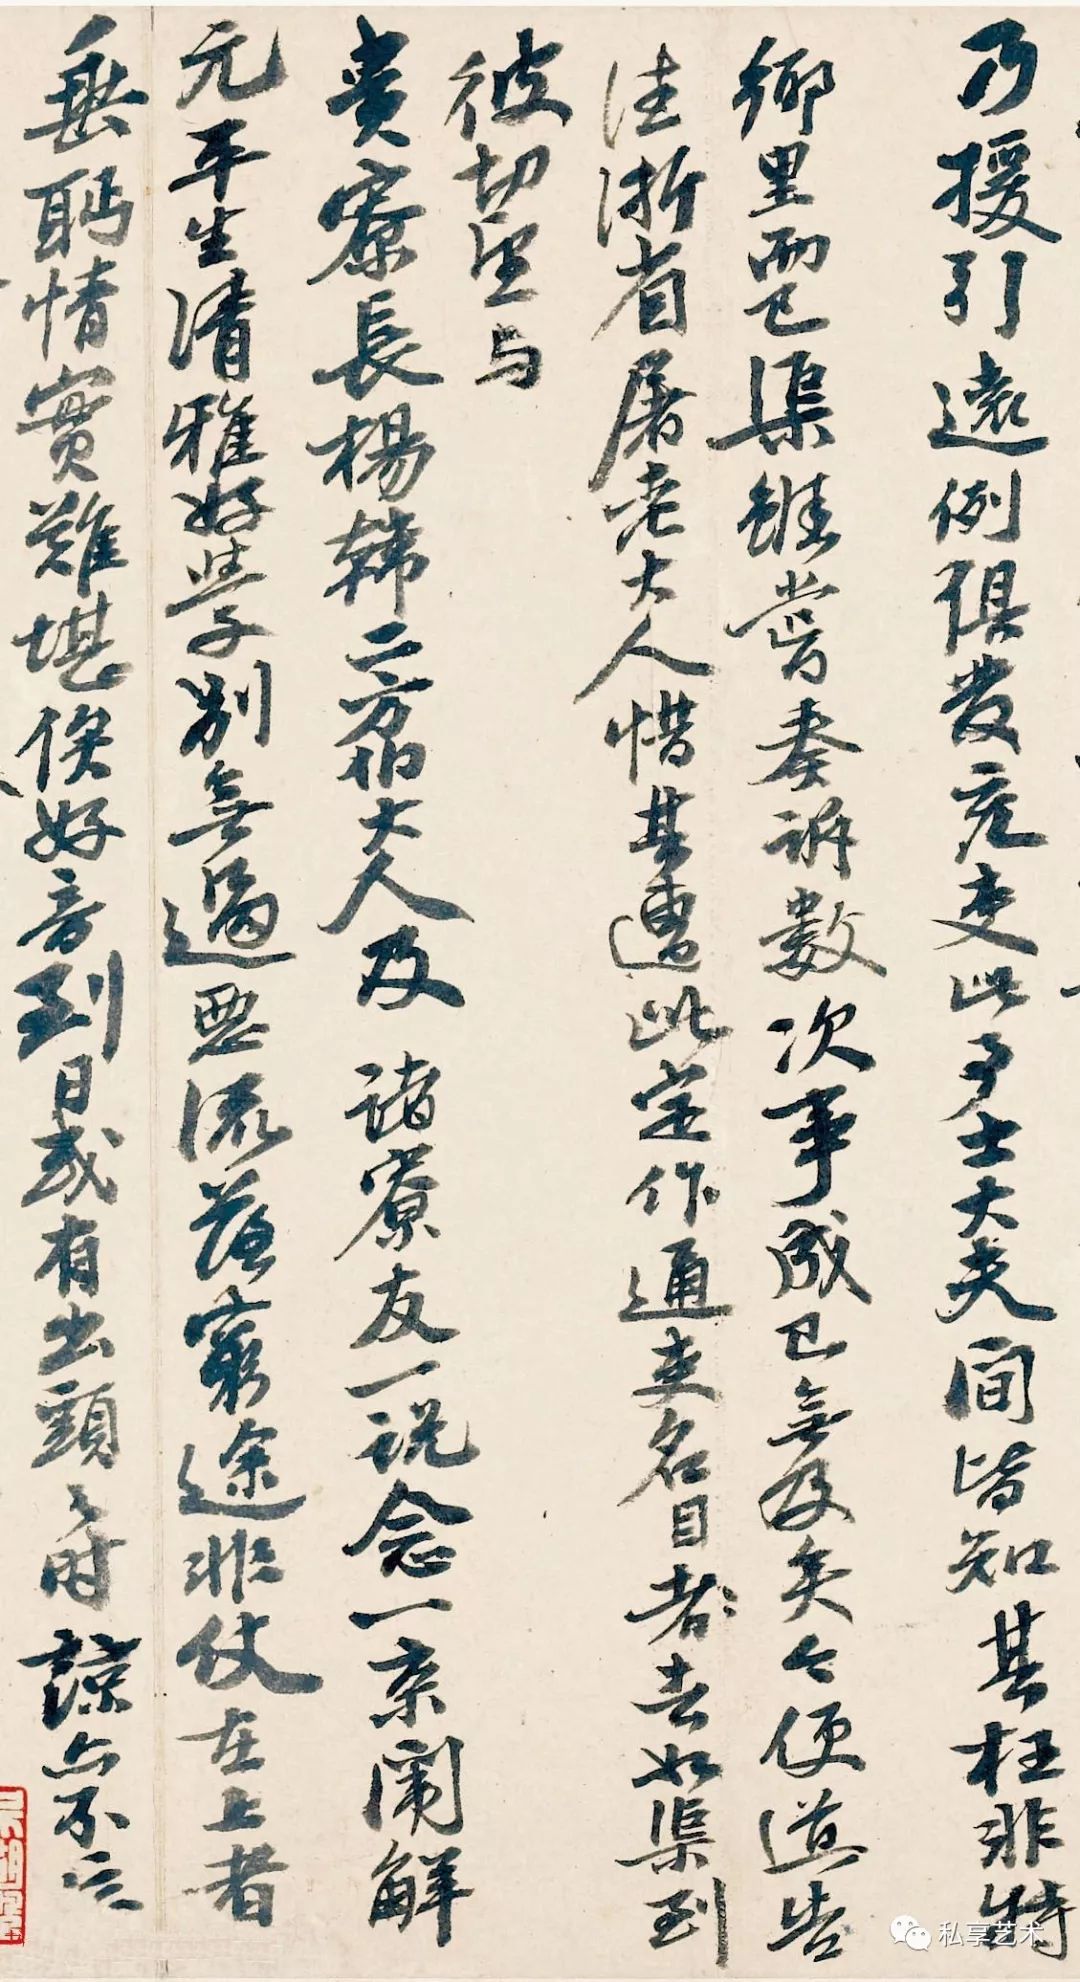 乃援引遠例俱發充吏此事士大夫間皆知其枉非特
鄉里而已渠雖嘗奏訴數次事成已無及矣今便道告
往浙省屠老大人惜其遭此定作通吏名目者去如渠到
彼切望与
貴寮長楊韓二方伯大人及 諸寮友一說念一京闈解
元平生清雅好學別無過惡流落窮途非仗在上者
垂眄情實難堪俟好音到日或有出頭之時 諒亦不忘
私享艺术